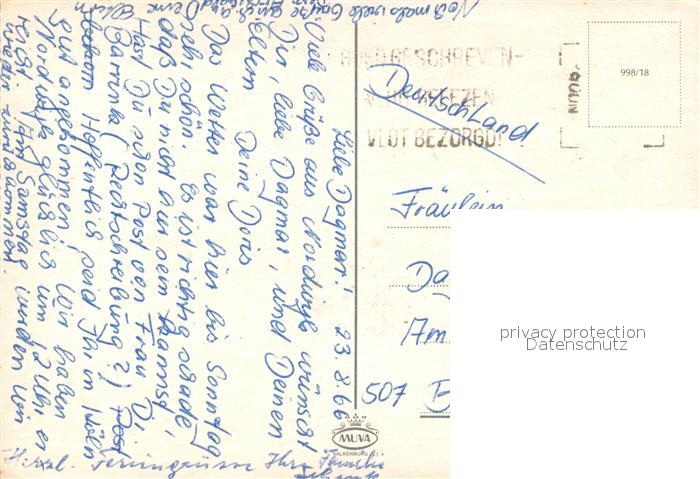 Liebe Dagmar! 23.8.66
Viele Grüße aus Nordwijk wünscht
Dir, liebe Dagmar, und Deinen
Eltern Deine Doris
Das Wetter war hier bis Sonntag
sehr schön. Es ist richtig schade,
daß Du nicht hier sein kannst.
Hast Du schon Post von Frau Dr.
Barrinka (Rechtschreibung?)
Hoffentlich seid Ihr in Köln
gut angekommen. Wir haben
Nordwijk glücklich um 12 Uhr er
reicht. Am Samstag werden wir
wieder zurückkommen.
Noch mals viele Grüße
Deine
Herzl. Feriengrüsse Ihre Familie
GOED GESCHREVEN-
VLOT BEZORGD!
998/18
Deutschland
Fräulein
Da
Am
507 B
MUVA
VALKENBURG
privacy protection
Datenschutz